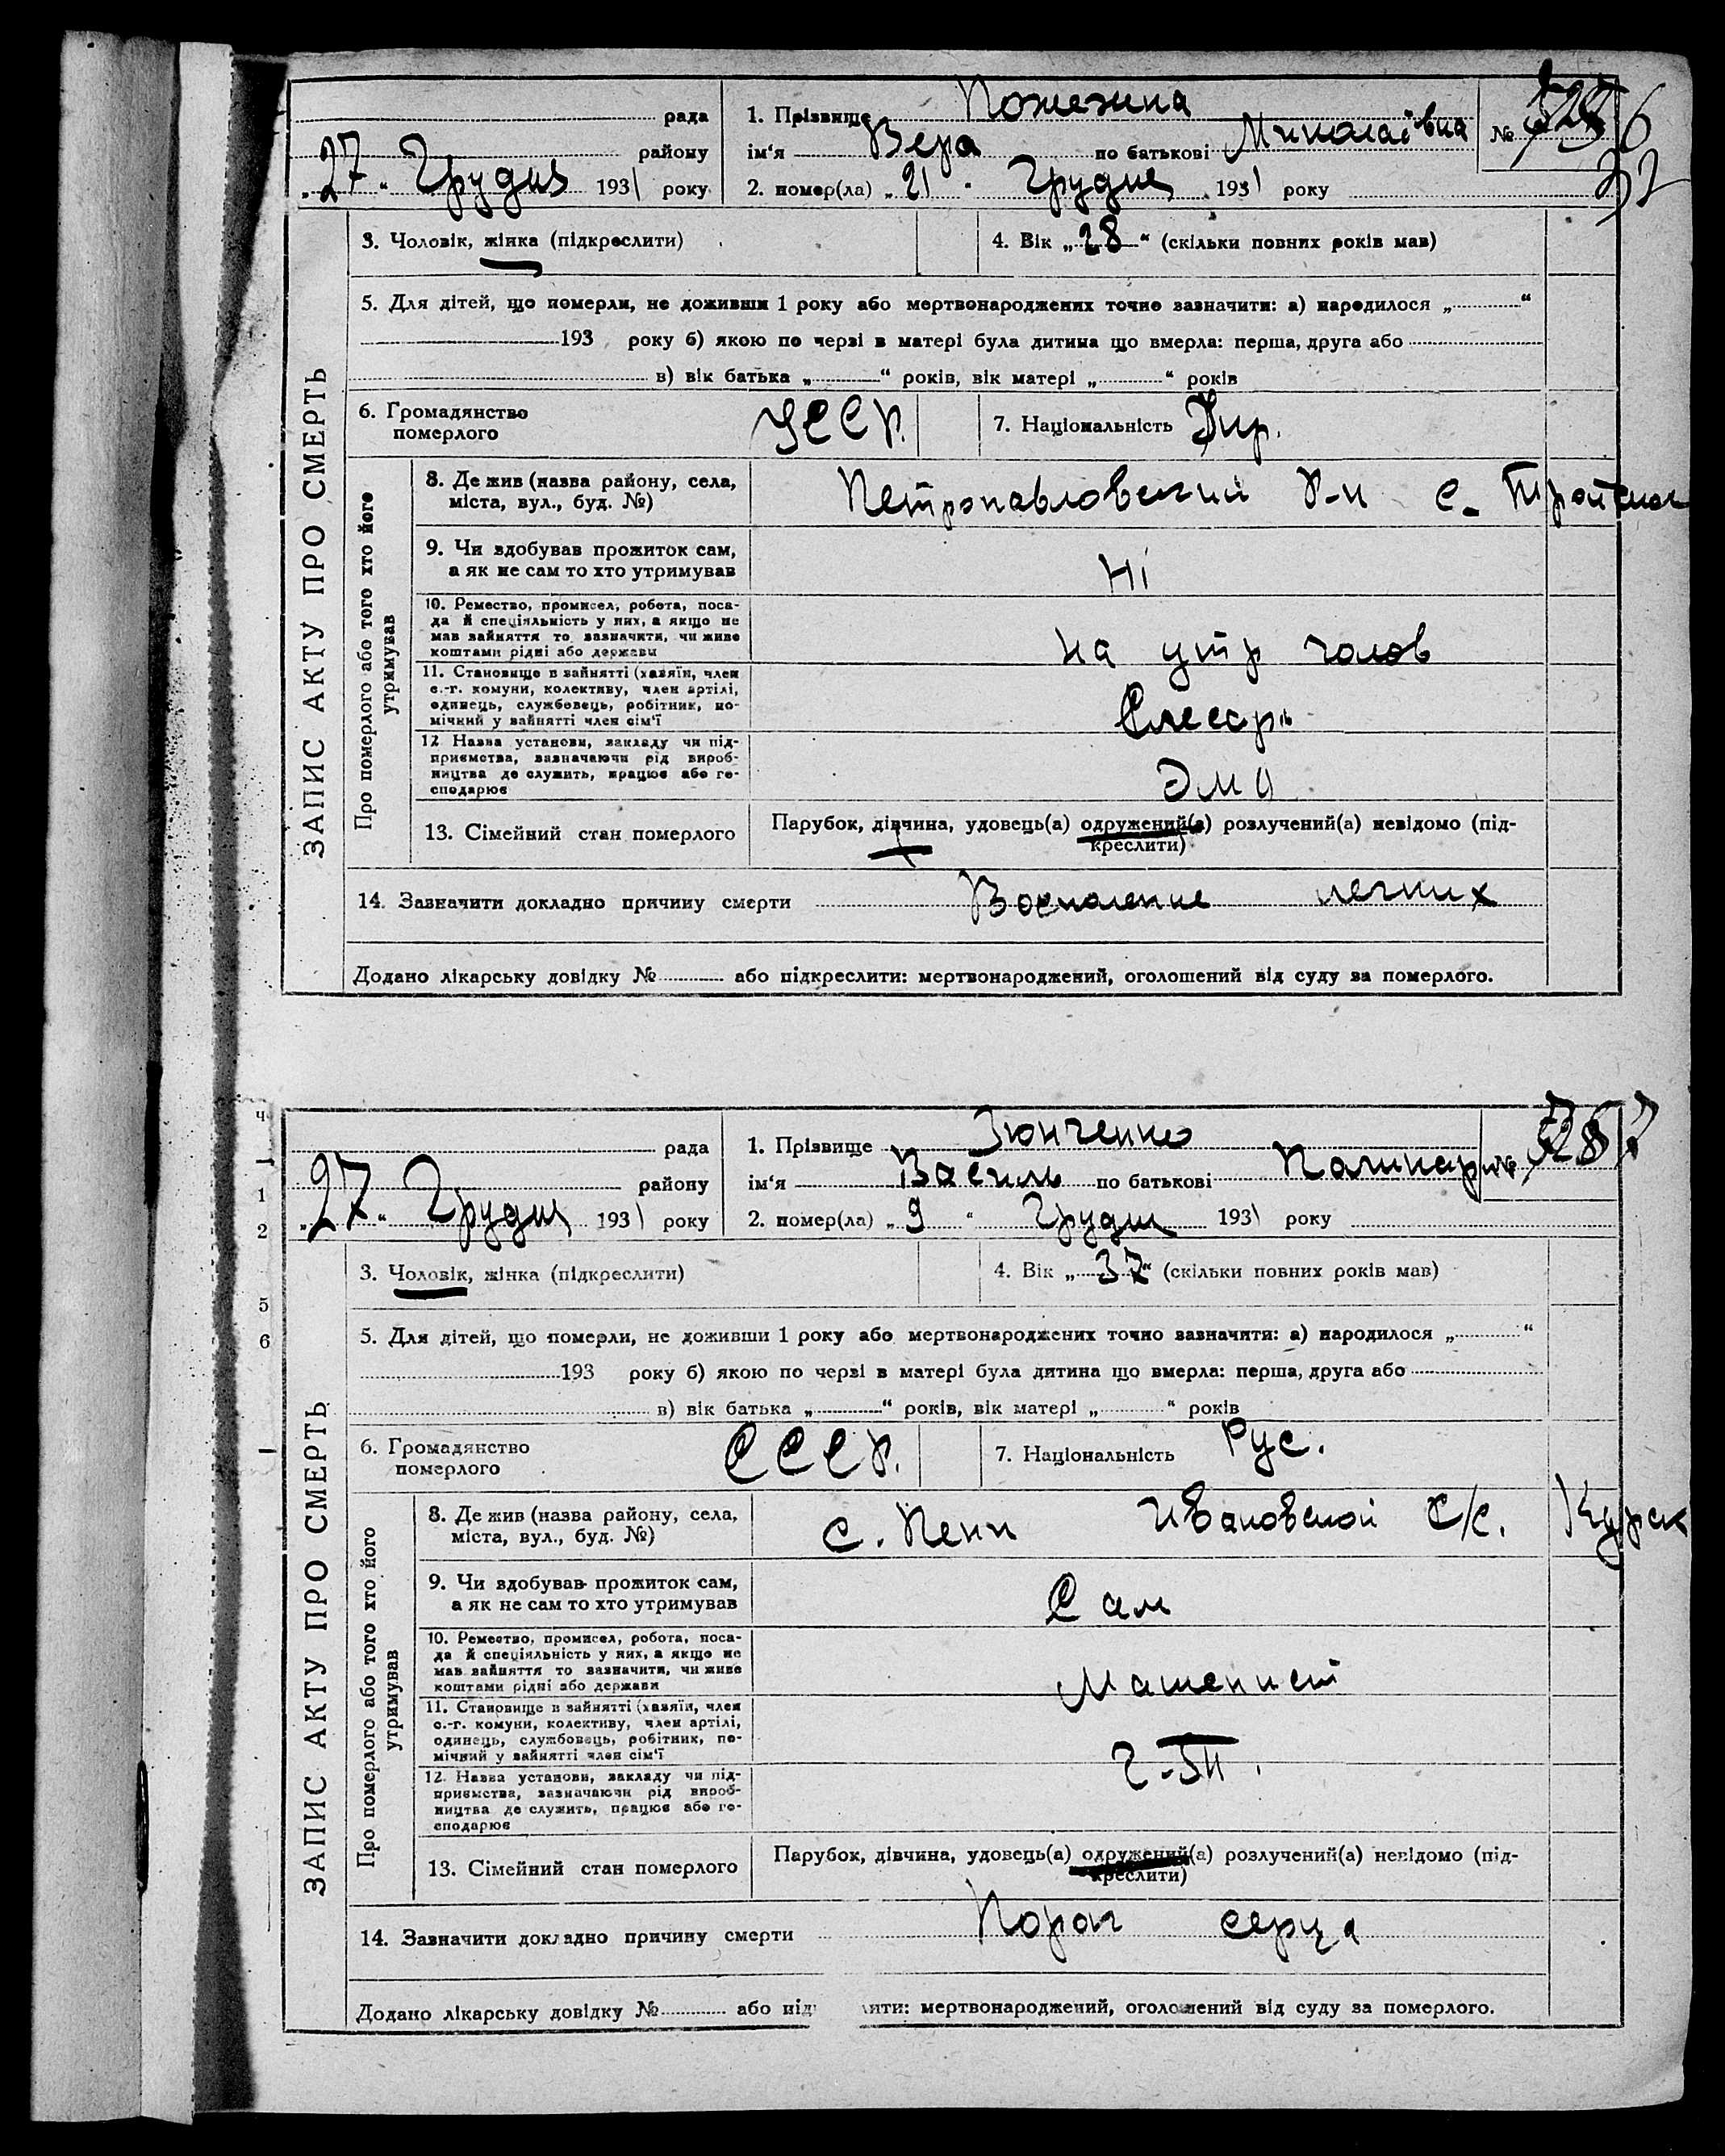 рада
району
„27“ Грудня 1931 року
1. Прізвище Пожежина
ім'я Вера по батькові Миколаївна
2. помер(ла) „21“ Грудня 1931 року
№
32
3. Чоловік, жінка (підкреслити)
4. Вік „28“ (скільки повних років мав)
5. Для дітей, що померли, не доживши 1 року або мертвонароджених точно зазначити: а) народилося „ “
193 року б) якою по черзі в матері була дитина що вмерла: перша, друга або
в) вік батька „ “ років, вік матері „ “ років
6. Громадянство померлого УССР.
7. Національність Укр.
ЗАПИС АКТУ ПРО СМЕРТЬ
Про померлого або того хто його утримував
8. Де жив (назва району, села,
міста, вул., буд. №)
Петропавловський Р-н с.
9. Чи здобував прожиток сам,
а як не сам то хто утримував
Ні
10. Ремество, промисел, робота, поса-
да й спеціяльність у них, а якщо не
мав зайняття то зазначити, чи живе
коштами рідні або держави
на утр голов
11. Становище в зайнятті (хазяїн, член
с.-г. комуни, колективу, член артілі,
одинець, службовець, робітник, по-
мічний у зайнятті член сім'ї
Слесарь
12 Назва установи, закладу чи під-
приємства, зазначаючи рід вироб-
ництва де служить, працює або го-
сподарює
13. Сімейний стан померлого
Парубок, дівчина, удовець(а) одружений(а) розлучений(а) невідомо (під-
креслити)
14. Зазначити докладно причину смерти Воспаление легких
Додано лікарську довідку № або підкреслити: мертвонароджений, оголошений від суду за померлого.
ч
1
2
5
6
рада
району
„27“ Грудня 1931 року
1. Прізвище Зюнченко
ім'я Василь по батькові
2. помер(ла) „9“ Грудня 1931 року
№
3. Чоловік, жінка (підкреслити)
4. Вік „37“ (скільки повних років мав)
5. Для дітей, що померли, не доживши 1 року або мертвонароджених точно зазначити: а) народилося „ “
193 року б) якою по черзі в матері була дитина що вмерла: перша, друга або
в) вік батька „ “ років, вік матері „ “ років
6. Громадянство померлого СССР.
7. Національність Рус.
ЗАПИС АКТУ ПРО СМЕРТЬ
Про померлого або того хто його утримував
8. Де жив (назва району, села,
міста, вул., буд. №)
с. Пени Ивановской с/с. Курск
9. Чи здобував прожиток сам,
а як не сам то хто утримував
Сам
10. Ремество, промисел, робота, поса-
да й спеціяльність у них, а якщо не
мав зайняття то зазначити, чи живе
коштами рідні або держави
Машенист
11. Становище в зайнятті (хазяїн, член
с.-г. комуни, колективу, член артілі,
одинець, службовець, робітник, по-
мічний у зайнятті член сім'ї
12. Назва установи, закладу чи під-
приємства, зазначаючи рід вироб-
ництва де служить, працює або го-
сподарює
13. Сімейний стан померлого
Парубок, дівчина, удовець(а) одружений(а) розлучений(а) невідомо (під-
креслити)
14. Зазначити докладно причину смерти Порок серца
Додано лікарську довідку № або під ити: мертвонароджений, оголошений від суду за померлого.